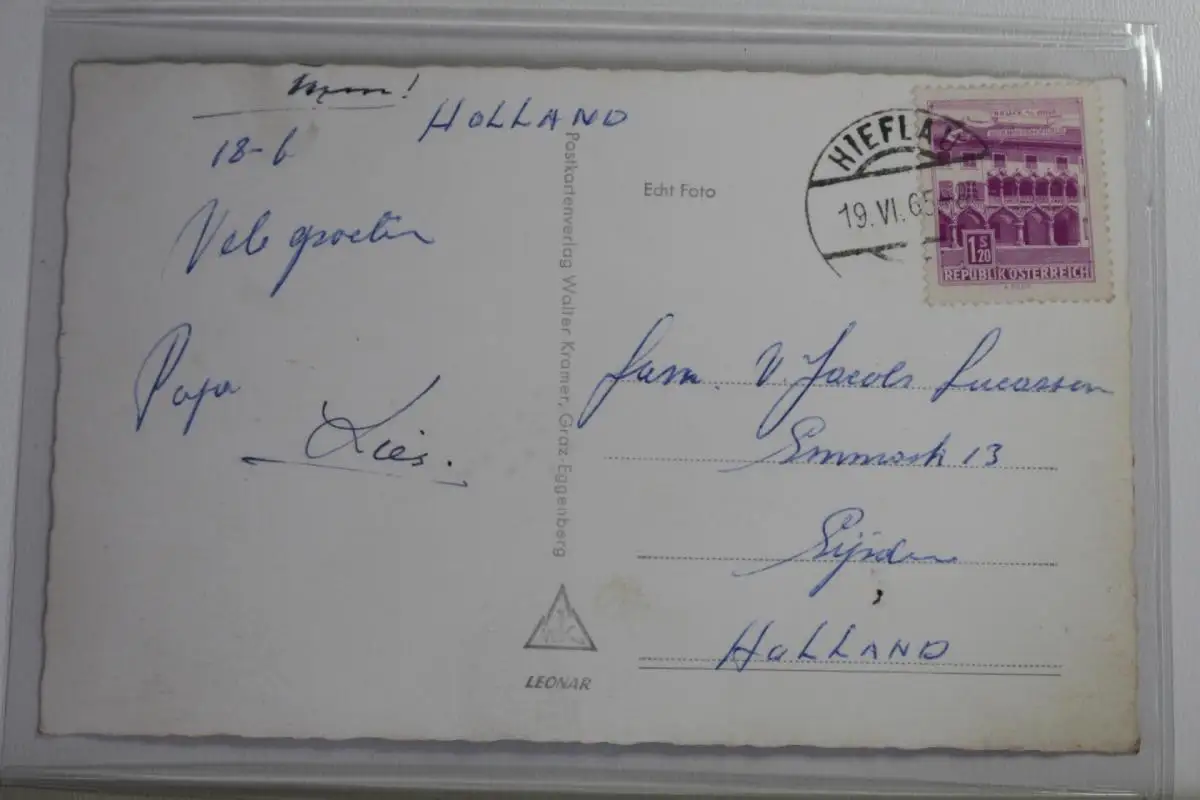 HOLLAND
18-6
Vele groeten
Papa
Lies.
Postkartenverlag Walter Kramer, Graz-Eggenberg
LEONAR
Echt Foto
HIEFLAU
19.VI.65-8
1 S 20
REPUBLIK ÖSTERREICH
Fam. V. Jacobs Lucassen
13
HOLLAND